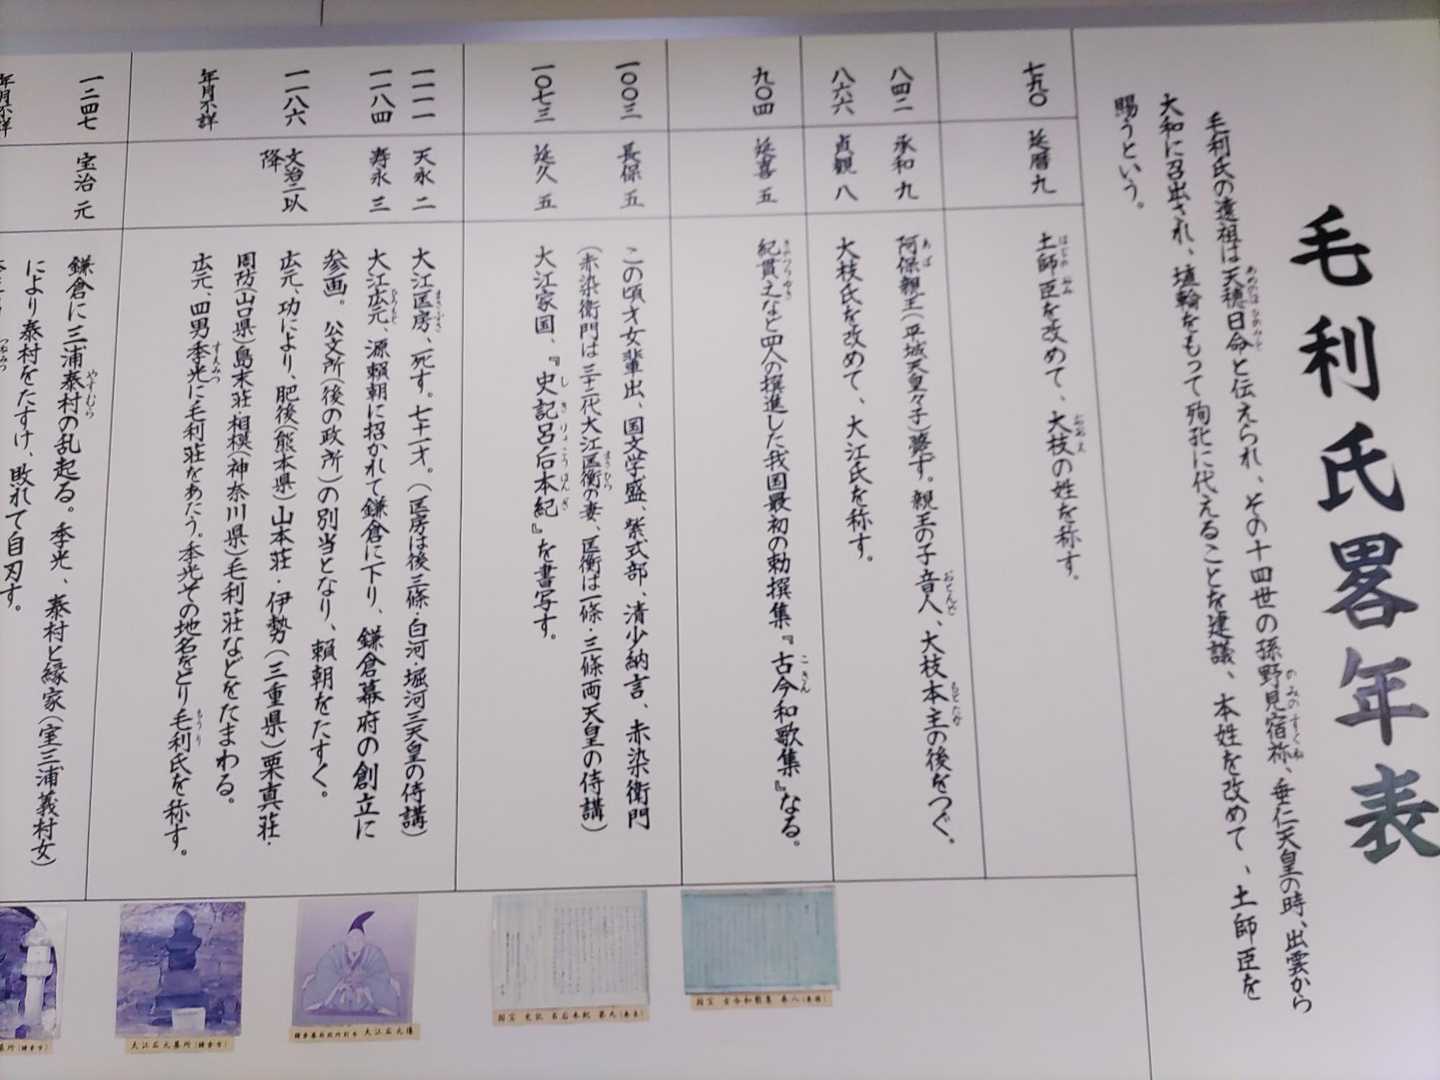 毛利氏畧年表
毛利氏の遠祖は天穂日命と伝えられ、その十四世の孫野見宿祢、垂仁天皇の時、出雲から
大和に召出され、埴輪をもって殉死に代えることを建議、本姓を改めて、土師臣を
賜うという。
七九〇
延暦九
土師臣を改めて、大枝の姓を称す。
八四二
承和九
阿保親王(平城天皇々子)薨す。親王の子音人、大枝本主の後をつぐ。
八六六
貞観八
大枝氏を改めて、大江氏を称す。
九〇四
延喜五
紀貫之など四人の撰進した我国最初の勅撰集『古今和歌集』なる。
一〇〇三
長保五
この頃才女輩出、国文学盛、紫式部、清少納言、赤染衛門
(赤染衛門は三十二代大江匡衡の妻、匡衡は一條・三條両天皇の侍講)
一〇七三
延久五
大江家国、『史記呂后本紀』を書写す。
一一一一
天永二
大江匡房、死す。七十一才。(匡房は後三條・白河・堀河三天皇の侍講)
一一八四
寿永三
大江広元、源頼朝に招かれて鎌倉に下り、鎌倉幕府の創立に
参画。公文所(後の政所)の別当となり、頼朝をたすく。
一一八六
文治二以
降
広元、功により、肥後(熊本県)山本荘・伊勢(三重県)栗真荘・
周防(山口県)島末荘・相模(神奈川県)毛利荘などをたまわる。
年月不詳
広元、四男季光に毛利荘をあたう。季光その地名をとり毛利氏を称す。
一二四七
宝治元
鎌倉に三浦泰村の乱起る。季光、泰村と縁家(室三浦義村女)
により泰村をたすけ、敗れて自刃す。
年月不詳
国宝 古今和歌集 巻八(巻頭)
国宝 史記 呂后本紀 第九(巻末)
鎌倉幕府政所別当 大江広元像
大江広元墓所(鎌倉市)
墓所(鎌倉市)